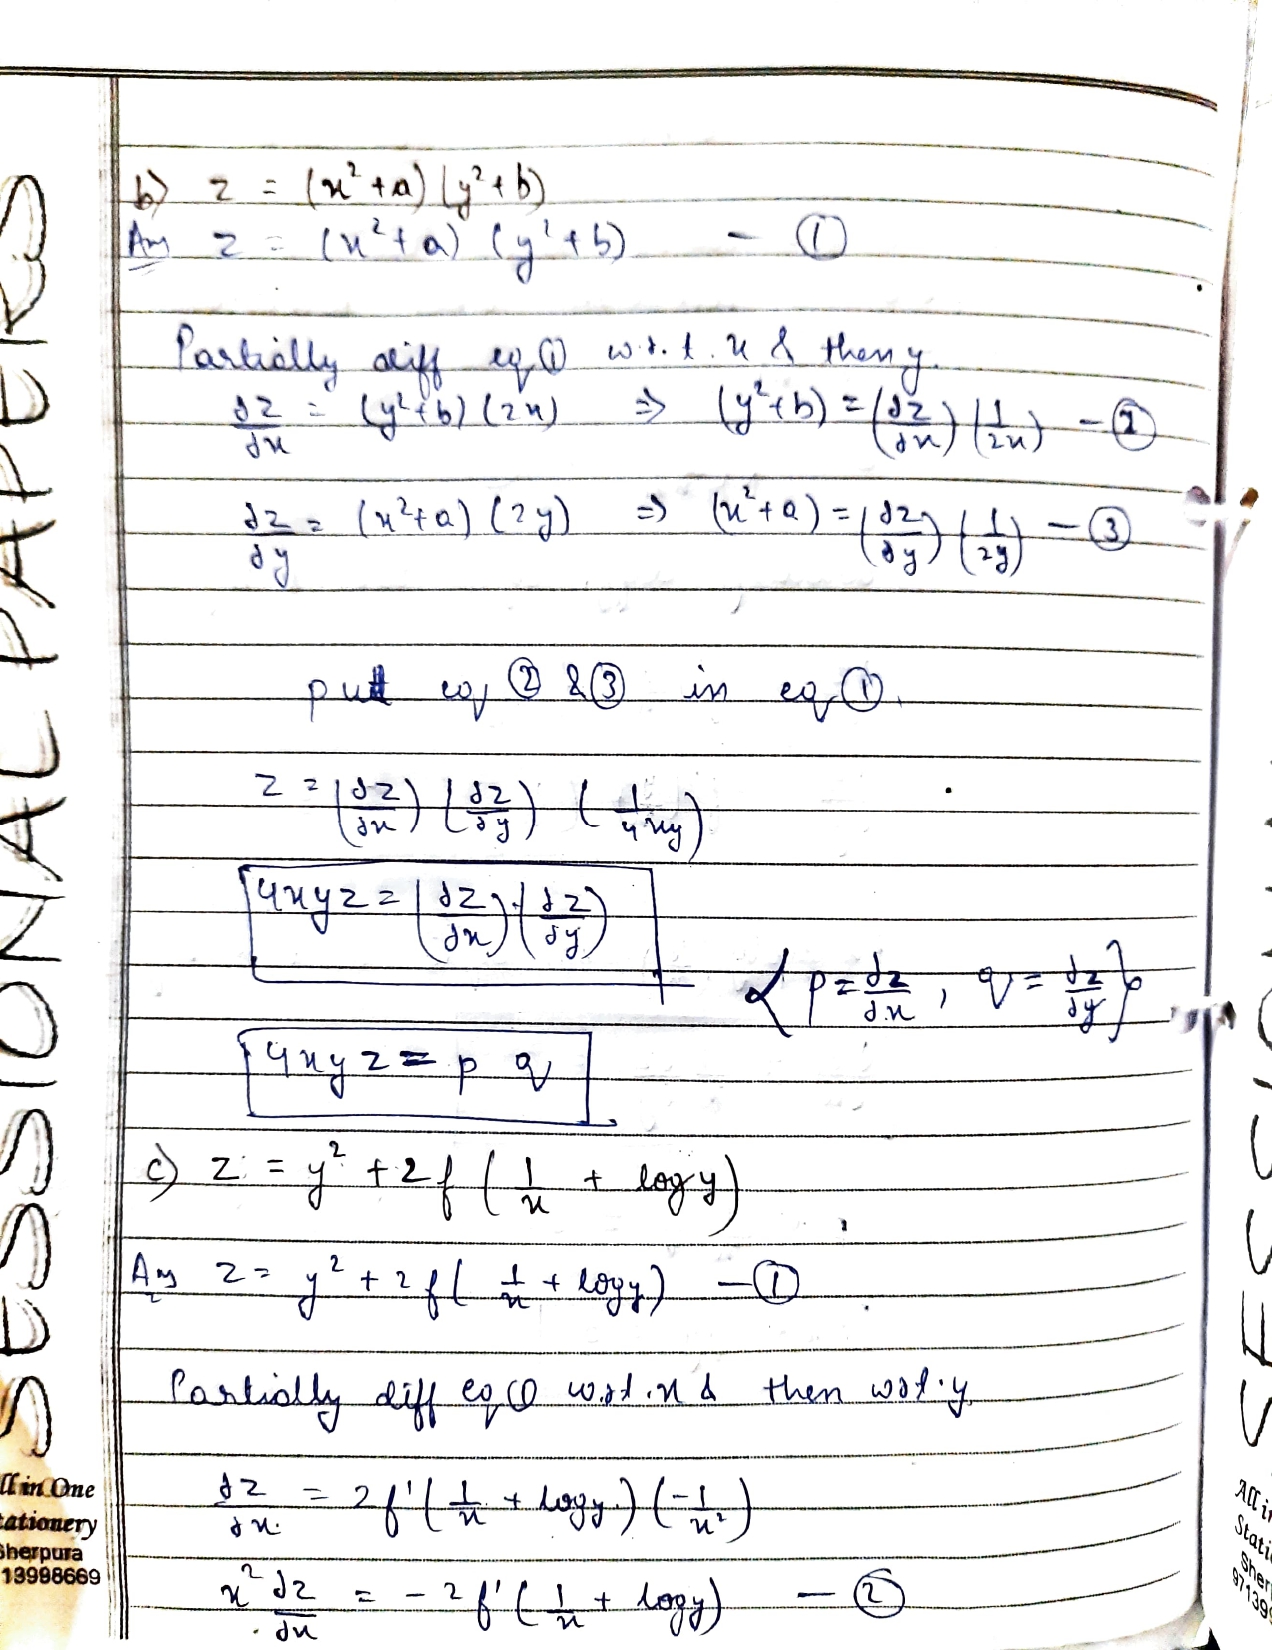 b) z = (x² + a) (y² + b)
Ans z = (x² + a) (y² + b) - ①
Partially diff eq ① w.r.t. x & then y.
∂z/∂x = (y² + b) (2x) ⇒ (y² + b) = (∂z/∂x) (1/2x) - ②
∂z/∂y = (x² + a) (2y) ⇒ (x² + a) = (∂z/∂y) (1/2y) - ③
put eq ② & ③ in eq ①.
z = (∂z/∂x) (∂z/∂y) (1/4xy)
4xyz = (∂z/∂x) · (∂z/∂y)
{ p = ∂z/∂x , q = ∂z/∂y }
4xyz = p q
c) z = y² + 2 f (1/x + log y)
Ans z = y² + 2 f ( 1/x + log y) - ①
Partially diff eq ① w.r.t. x & then w.r.t. y.
∂z/∂x = 2 f' ( 1/x + log y ) (-1/x²)
x² ∂z/∂x = - 2 f' ( 1/x + log y) - ②
SESSIONAL PAPERS
ll in One
tationery
Sherpura
13998669
SESSION
All in
Stati
Sher
971399